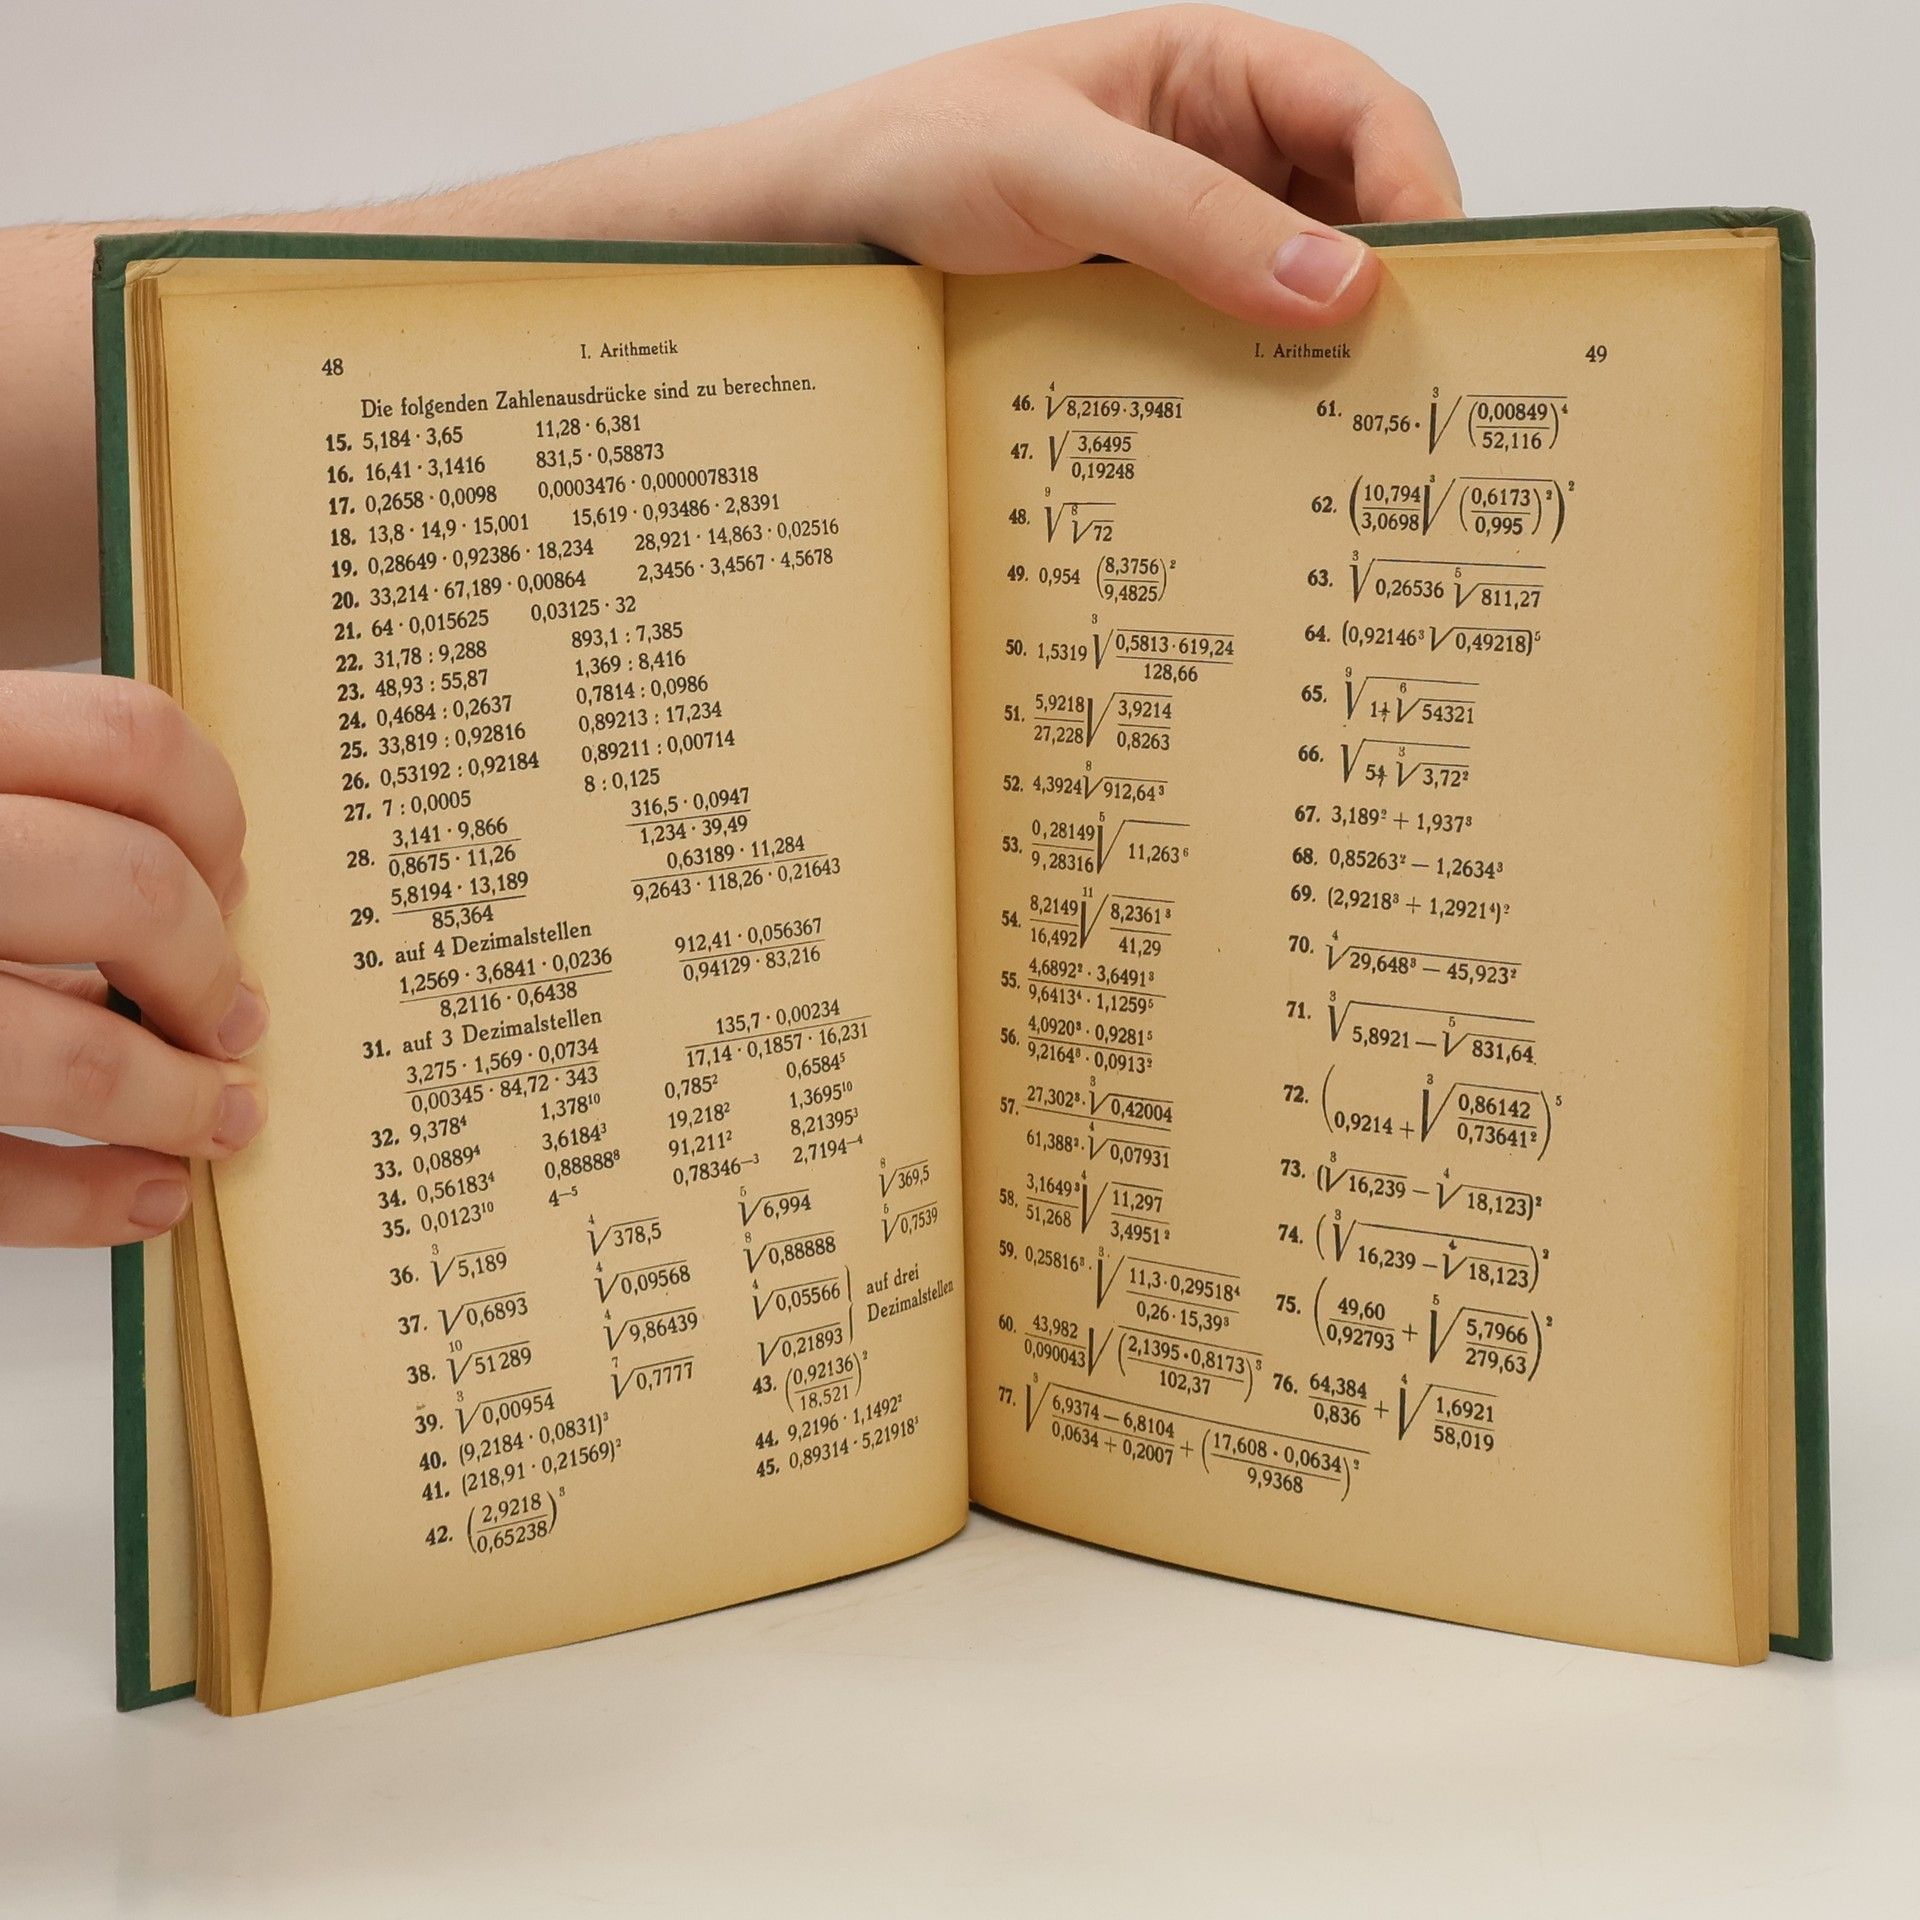 48
I. Arithmetik
Die folgenden Zahlenausdrücke sind zu berechnen.
15. 5,184 · 3,65 11,28 · 6,381
16. 16,41 · 3,1416 831,5 · 0,58873
17. 0,2658 · 0,0098 0,0003476 · 0,0000078318
18. 13,8 · 14,9 · 15,001 15,619 · 0,93486 · 2,8391
19. 0,28649 · 0,92386 · 18,234 28,921 · 14,863 · 0,02516
20. 33,214 · 67,189 · 0,00864 2,3456 · 3,4567 · 4,5678
21. 64 · 0,015625 0,03125 · 32
22. 31,78 : 9,288 893,1 : 7,385
23. 48,93 : 55,87 1,369 : 8,416
24. 0,4684 : 0,2637 0,7814 : 0,0986
25. 33,819 : 0,92816 0,89213 : 17,234
26. 0,53192 : 0,92184 0,89211 : 0,00714
27. 7 : 0,0005 8 : 0,125
28. (3,141 · 9,866)/(0,8675 · 11,26) (316,5 · 0,0947)/(1,234 · 39,49)
29. (5,8194 · 13,189)/85,364 (0,63189 · 11,284)/(9,2643 · 118,26 · 0,21643)
30. auf 4 Dezimalstellen
(1,2569 · 3,6841 · 0,0236)/(8,2116 · 0,6438) (912,41 · 0,056367)/(0,94129 · 83,216)
31. auf 3 Dezimalstellen
(3,275 · 1,569 · 0,0734)/(0,00345 · 84,72 · 343) (135,7 · 0,00234)/(17,14 · 0,1857 · 16,231)
32. 9,378⁴ 1,378¹⁰ 0,785² 0,6584⁵
33. 0,0889⁴ 3,6184³ 19,218² 1,3695¹⁰
34. 0,56183⁴ 0,88888⁸ 91,211² 8,21395³
35. 0,0123¹⁰ 4⁻⁵ 0,78346⁻³ 2,7194⁻⁴
36. ³√5,189 ⁴√378,5 ⁵√6,994 ⁸√369,5
37. √0,6893 ⁴√0,09568 ⁸√0,88888 ⁵√0,7539
38. ¹⁰√51289 ⁴√9,86439 ⁴√0,05566 auf drei
39. ³√0,00954 ⁷√0,7777 √0,21893 Dezimalstellen
40. (9,2184 · 0,0831)³
41. (218,91 · 0,21569)²
42. (2,9218/0,65238)³
43. (0,92136/18,521)²
44. 9,2196 · 1,1492²
45. 0,89314 · 5,21918³
I. Arithmetik
49
46. ⁴√(8,2169·3,9481)
47. √(3,6495/0,19248)
48. ⁹√(⁸√72)
49. 0,954 (8,3756/9,4825)²
50. 1,5319 ³√((0,5813·619,24)/128,66)
51. 5,9218/27,228 √(3,9214/0,8263)
52. 4,3924 ⁸√(912,64³)
53. 0,28149/9,28316 ⁵√(11,263⁶)
54. 8,2149/16,492 ¹¹√(8,2361³/41,29)
55. (4,6892² · 3,6491³)/(9,6413⁴ · 1,1259⁵)
56. (4,0920³ · 0,9281⁵)/(9,2164³ · 0,0913²)
57. (27,302³ · ³√0,42004)/(61,388² · ⁴√0,07931)
58. 3,1649³/51,268 ⁴√(11,297/3,4951²)
59. 0,25816³ · ³√((11,3·0,29518⁴)/(0,26·15,39³))
60. 43,982/0,090043 √((2,1395·0,8173)/102,37)³
61. 807,56 · ³√(0,00849/52,116)⁴
62. (10,794/3,0698 ³√(0,6173/0,995)²)²
63. ³√(0,26536 ⁵√811,27)
64. (0,92146³ √0,49218)⁵
65. ⁹√(1 ⁶√54321)
66. √(5 ³√3,72²)
67. 3,189² + 1,937³
68. 0,85263² — 1,2634³
69. (2,9218³ + 1,2921⁴)²
70. ⁴√(29,648³ — 45,923²)
71. ³√(5,8921 — ⁵√831,64)
72. (0,9214 + ³√(0,86142/0,73641²))⁵
73. (³√16,239 — ⁴√18,123)²
74. (³√(16,239 — ⁴√18,123))²
75. (49,60/0,92793 + ⁵√(5,7966/279,63))²
76. 64,384/0,836 + ⁴√(1,6921/58,019)
77. ³√((6,9374 — 6,8104)/(0,0634 + 0,2007) + ((17,608 · 0,0634)/9,9368)³)